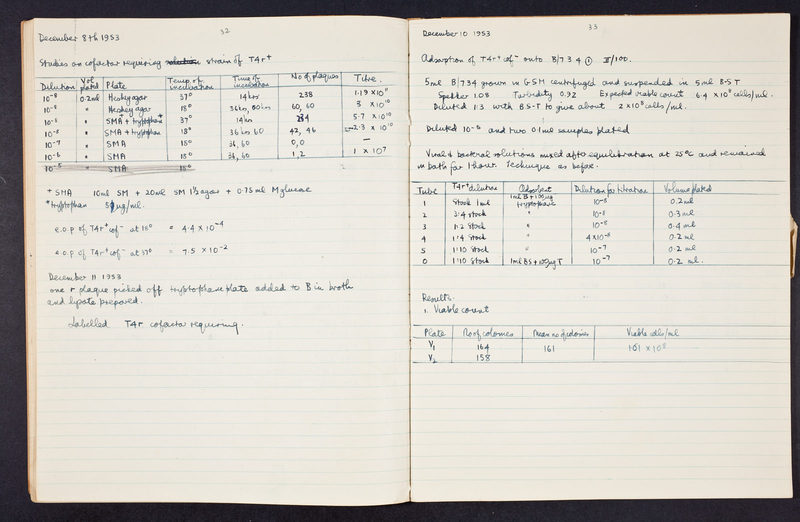 32
December 8th 1953
Studies on cofactor requiring strain of T4r+
Dilution Vol plated Plate Temp. of incubation Time of incubation No of plaques Titre.
10-8 0.2ml Hershey agar 37° 14 hrs 238 1.19 x 10"
10-8 " Hershey agar 18° 36 hrs, 60 hrs 60, 60 3 x 1010
10-5 " SMA+ + tryptophan+ 37° 14 hrs 5.7 x 1010
10-8 " SMA + tryptophan 18° 36 hrs 60 42, 46 2.3 x 1010
10-7 " SMA 18° 36, 60 0, 0 —
10-6 " SMA 18° 36, 60 1, 2 1 x 107
10-5 " SMA 18°
+ SMA 10ml SM + 20ml SM 1½ agar + 0.75 ml M glucose
+ tryptophan µg/ml.
e.o.p of T4r+ cof- at 18° = 4.4 x 10-4
e.o.p of T4r+ cof- at 37° = 7.5 x 10-2
December 11 1953
one r plaque picked off tryptophane plate added to B in broth
and lysate prepared.
Labelled T4r cofactor requiring.
33
December 10 1953
Adsorption of T4r+ cof- onto B/7 3 4 ① II/100.
5ml B/734 grown in GSM centrifuged and suspended in 5ml B-S T
Spekker 1.08 Turbidity 0.92 Expected viable count 6.4 x 108 cells/ml.
Diluted 1:3 with BS-T to give about 2 x 108 cells/ml.
Diluted 10-5 and two 0.1ml samples plated
Viral & bacterial solutions mixed after equilibration at 25°C and remained
in bath for 1 hour. Technique as before.
Tube T4r+ dilution Adsorbent Dilution for titration Volume plated
1 Stock 1ml 1ml B + 100µg tryptophane 10-8 0.2ml
2 3:4 stock " 10-8 0.3ml
3 1:2 stock " 10-8 0.4ml
4 1:4 stock " 4x10-8 0.2 ml
5 1:10 stock " 10-7 0.2 ml
0 1:10 stock 1ml BS + 100µg T 10-7 0.2 ml.
Results.
1. Viable count
Plate No of colonies Mean no of colonies Viable cells/ml
V1 164 161 1.61 x 108
V2 158